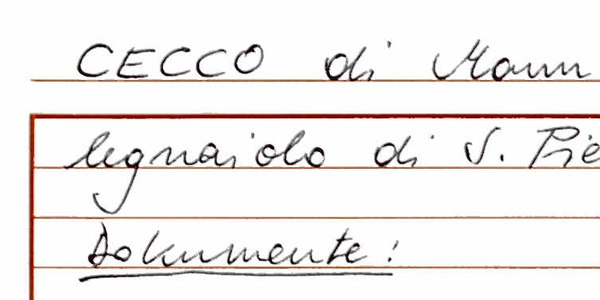 CECCO di Mann
legnaiolo di S. Piè
Dokumente: